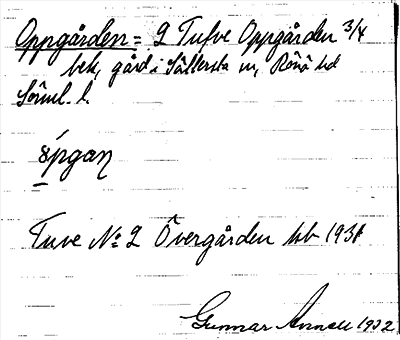 Oppgården = 2 Tufve Oppgården 3/4
hem, gård i Sättersta sn, Rönö hd
Söml. l.
ɷ̀pgaη
Tuve No 2 Övergården Jub 1931
Gunnar Annell 1932